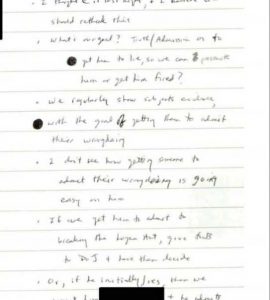 should rethink this
• What is our goal? Truth/Admission or to
get him to lie, so we can prosecute
him or get him fired?
• We regularly show subjects evidence,
with the goal of getting them to admit
their wrongdoing
• I don't see how getting someone to
admit their wrongdoing is going
easy on him
• If we get him to admit to
breaking the Logan Act, give facts
to DOJ & have them decide
• Or, if he initially lies, then we
& he admits